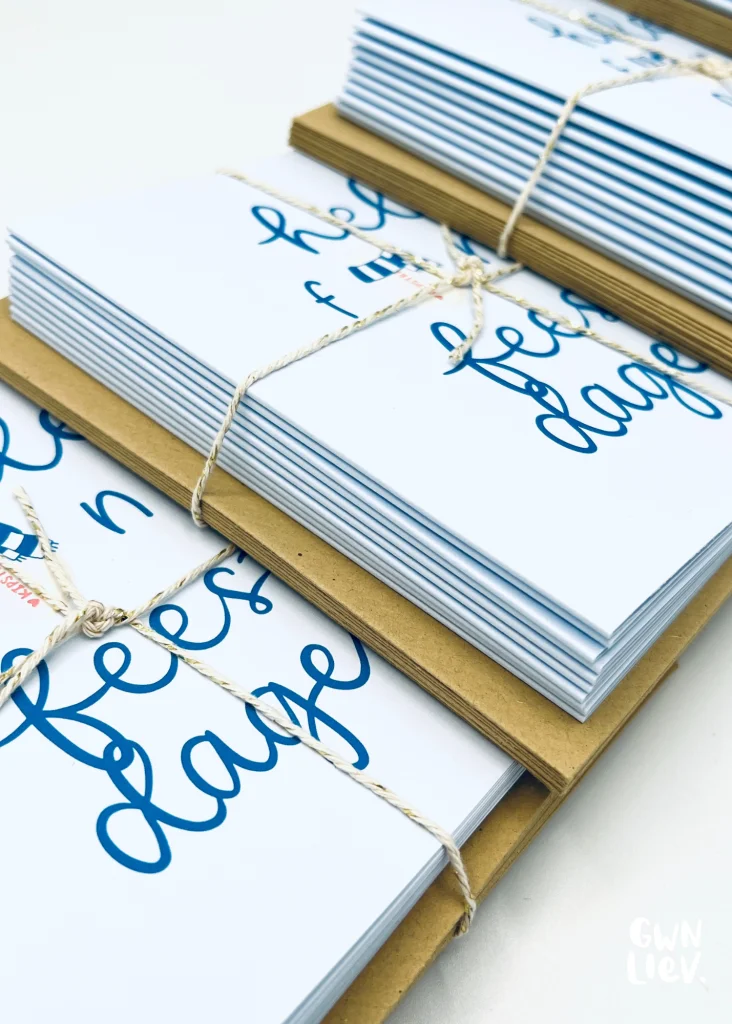 hel
f
fees
dage
le
n
fees
dage
GWN
LIEV.